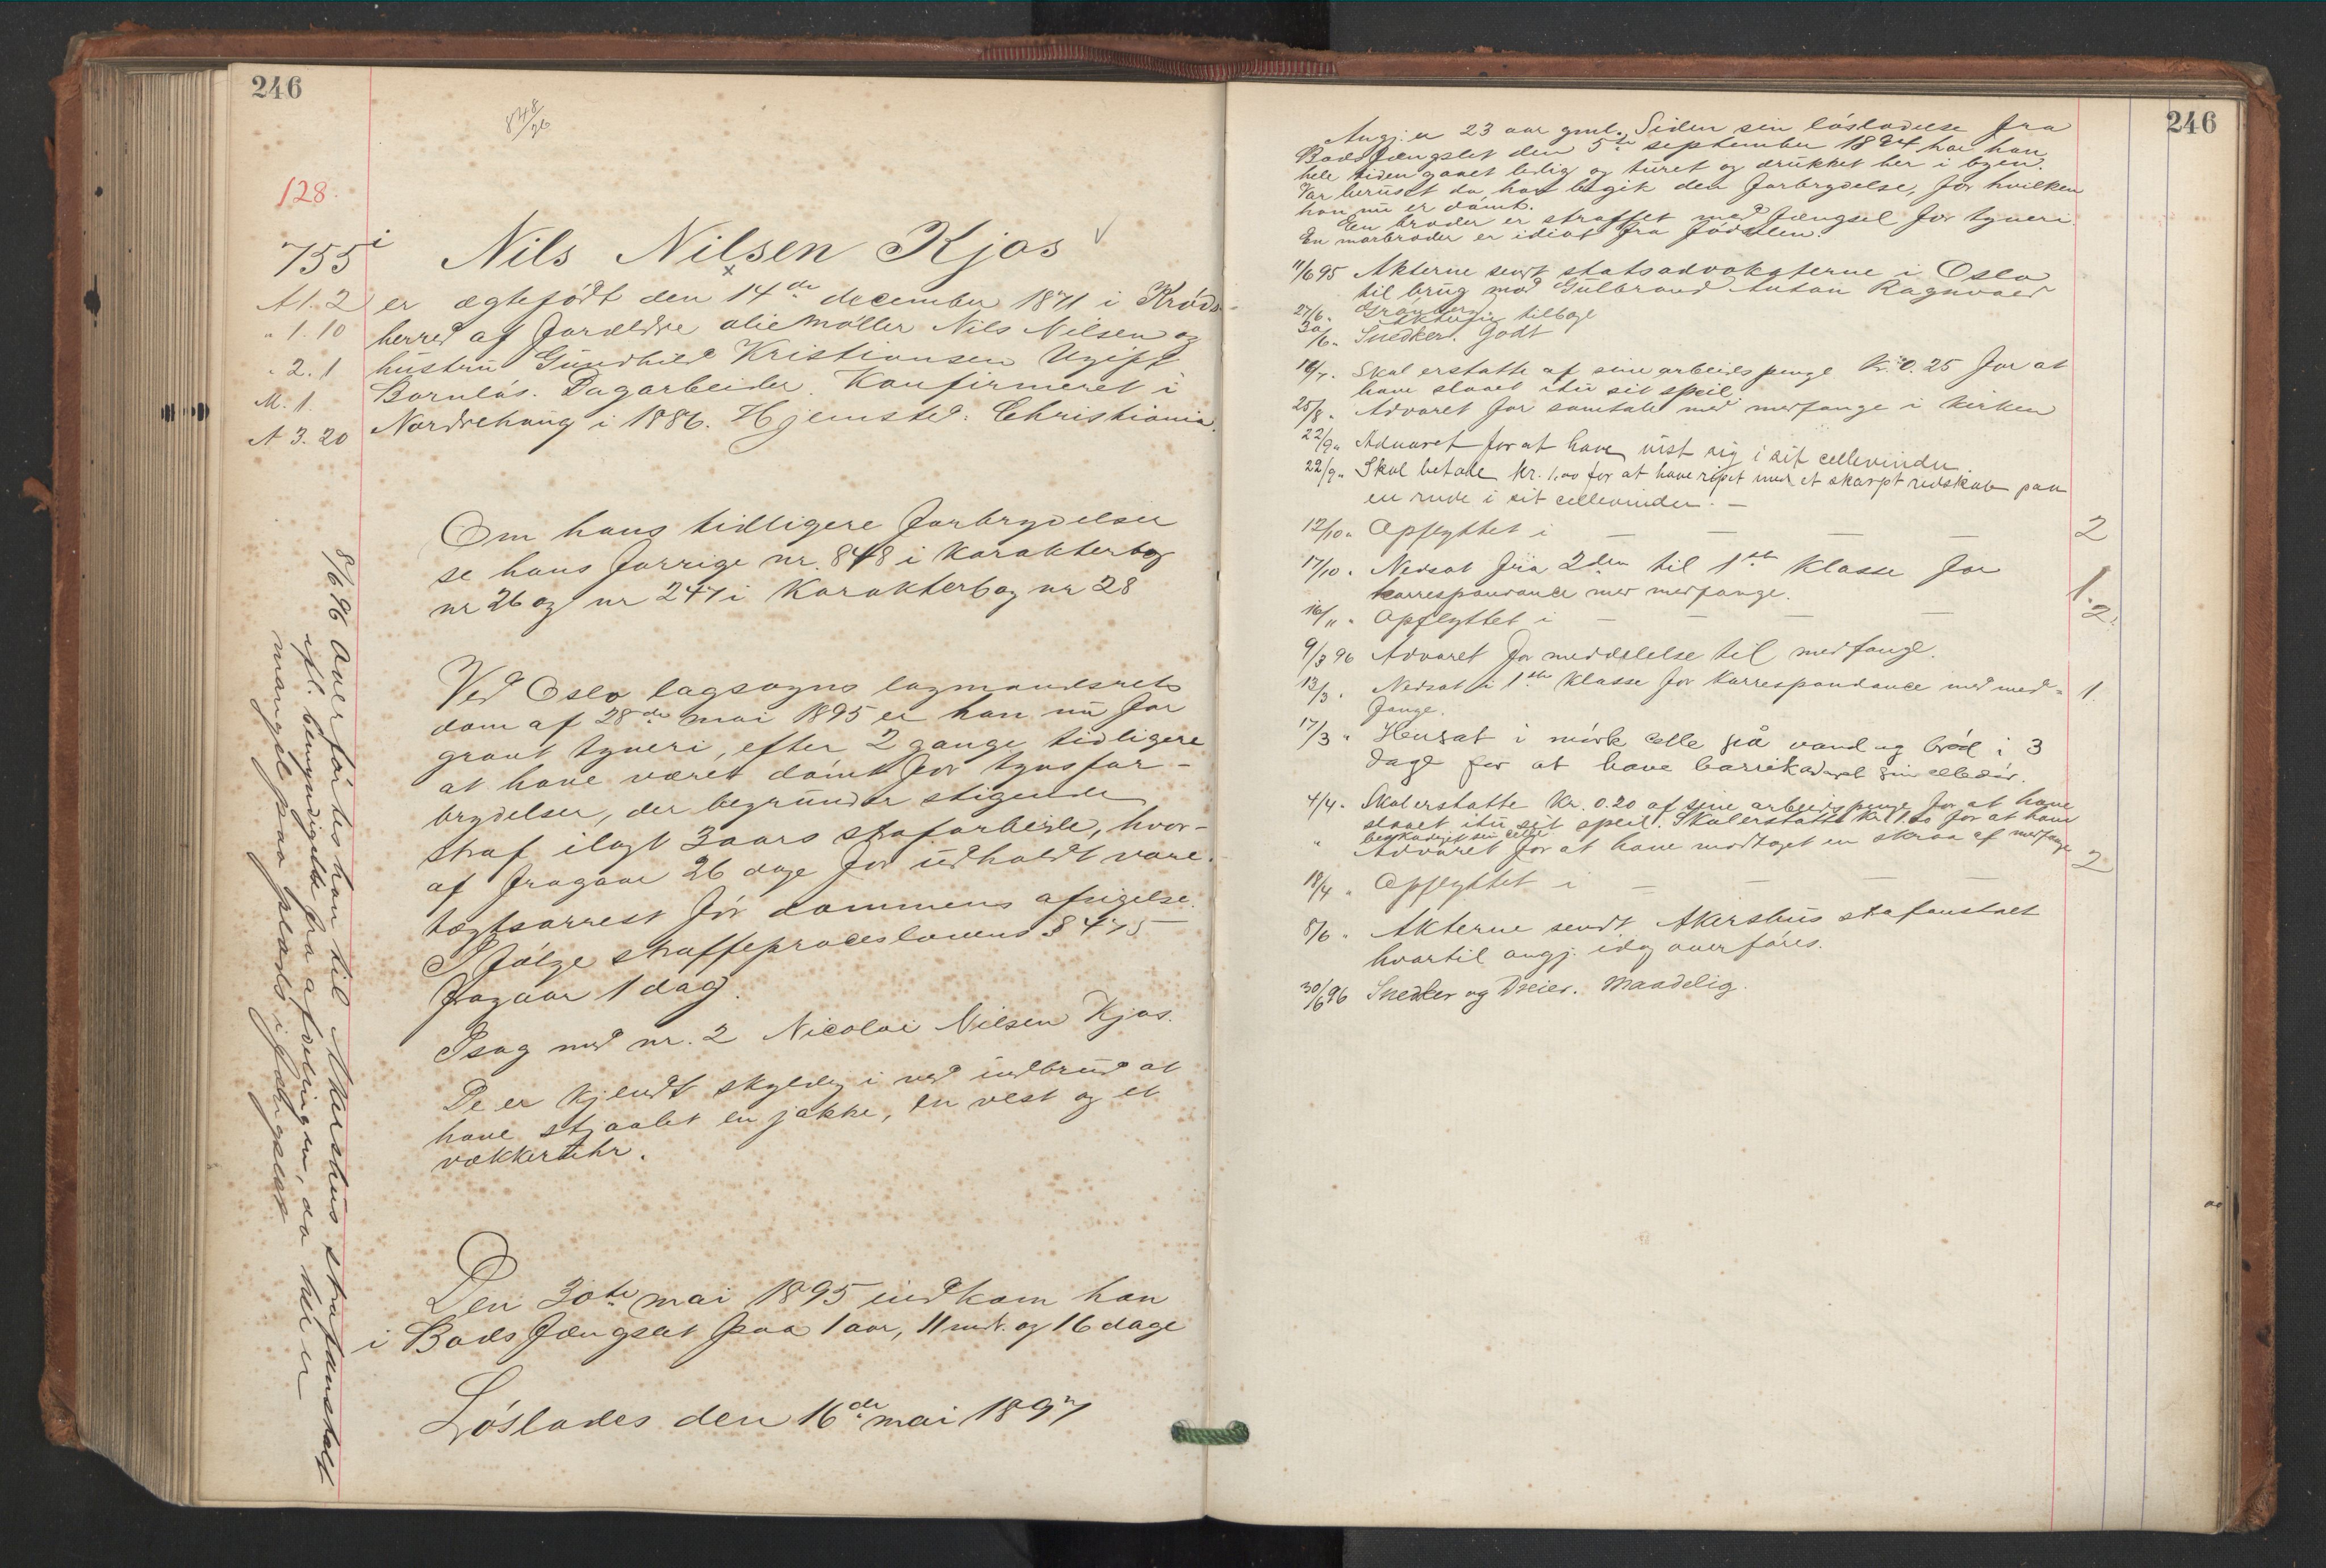 246
848/26
128.
755 i Nils Nilsen Kjos
A 1. 2 er ægtefødt den 14de december 1871 i Krøds-
" 1. 10 herred af forældre oliemøller Nils Nilsen og
" 2. 1 hustru Gundhild Kristiansen Ugift
M. 1. Barnløs. Dagarbeider. Konfirmeret i
A 3. 20 Nordrehaug i 1886. Hjemsted: Christiania.
Om hans tidligere forbrydelser
se hans forrige nr. 848 i karakterbog
nr 26 og nr 247 i Karakterbog nr 28
Ved Oslo lagsogns lagmandsrets
dom af 28de mai 1895 er han nu for
grovt tyveri, efter 2 gange tidligere
at have været dømt for tyvsfor-
brydelser, der begrunder stigende
straf ilagt 3 aars strafarbeide, hvor-
af fragaar 26 dage for udholdt vare-
tægtsarrest før dommens afsigelse.
Ifølge straffeproceslovens § 475
fragaar 1 dag.
I sag med nr. 2 Nicolai Nilsen Kjos.
De er kjendt skyldig i ved indbrud at
have stjaalet en jakke, en vest og et
vækkeruhr.
Den 30te mai 1895 indkom han
i Bodsfængslet paa 1 aar, 11 mdr. og 16 dage
Løslades den 16de mai 1897
8/6 96 overførtes han til Akershus strafanstalt
ifl. bemyndigelse fra afdelingen, da her er
mangel paa plads i fængslet.
246
Angj. er 23 aar gml. Siden sin løsladelse fra
Bodsfængslet den 5te september 1894 har han
hele tiden gaaet ledig og turet og drukket her i byen.
Var beruset da han begik den forbrydelse, for hvilken
han nu er dømt.
En broder er straffet med fængsel for tyveri.
En morbroder er idiot fra fødselen.
11/6 95 Akterne sendt statsadvokaterne i Oslo
til brug mod Gulbrand Anton Ragnvald
27/6 " Akterne tilbage
30/6 " Snedker. Godt
19/7 " Skal erstatte af sine arbeidspenge Kr. 0.25 for at
have slaaet itu sit speil.
25/8 " Advaret for samtale med medfange i kirken
22/9 " Advaret for at have vist sig i sit cellevindu.
22/9 " Skal betale kr. 1.00 for at have ripet med et skarpt redskab paa
en rude i sit cellevindu. —
12/10 " Opflyttet i — — — — 2
17/10 " Nedsat fra 2den til 1ste Klasse for
korrespondance med medfange. 1.
16/11 " Opflyttet i — — — 2.
9/3 96 Advaret for meddelelse til medfange.
13/3 " Nedsat i 1ste klasse for korrespondance med med- 1.
fange.
17/3 " Hensat i mørk celle på vand og brød i 3
dage for at have barrikaderet sin celledør.
4/4 " Skal erstatte Kr. 0.20 af sine arbeidspenge for at have
slaaet itu sit speil. Skal erstatte Kr 1.20 for at have
beskadiget sin celle
" Advaret for at have modtaget en skraa af medfange
18/4 " Opflyttet i — — — 2
8/6 " Akterne sendt Akershus strafanstalt
hvortil angj. idag overføres.
30/6 96 Snedker og Dreier. Maadelig.